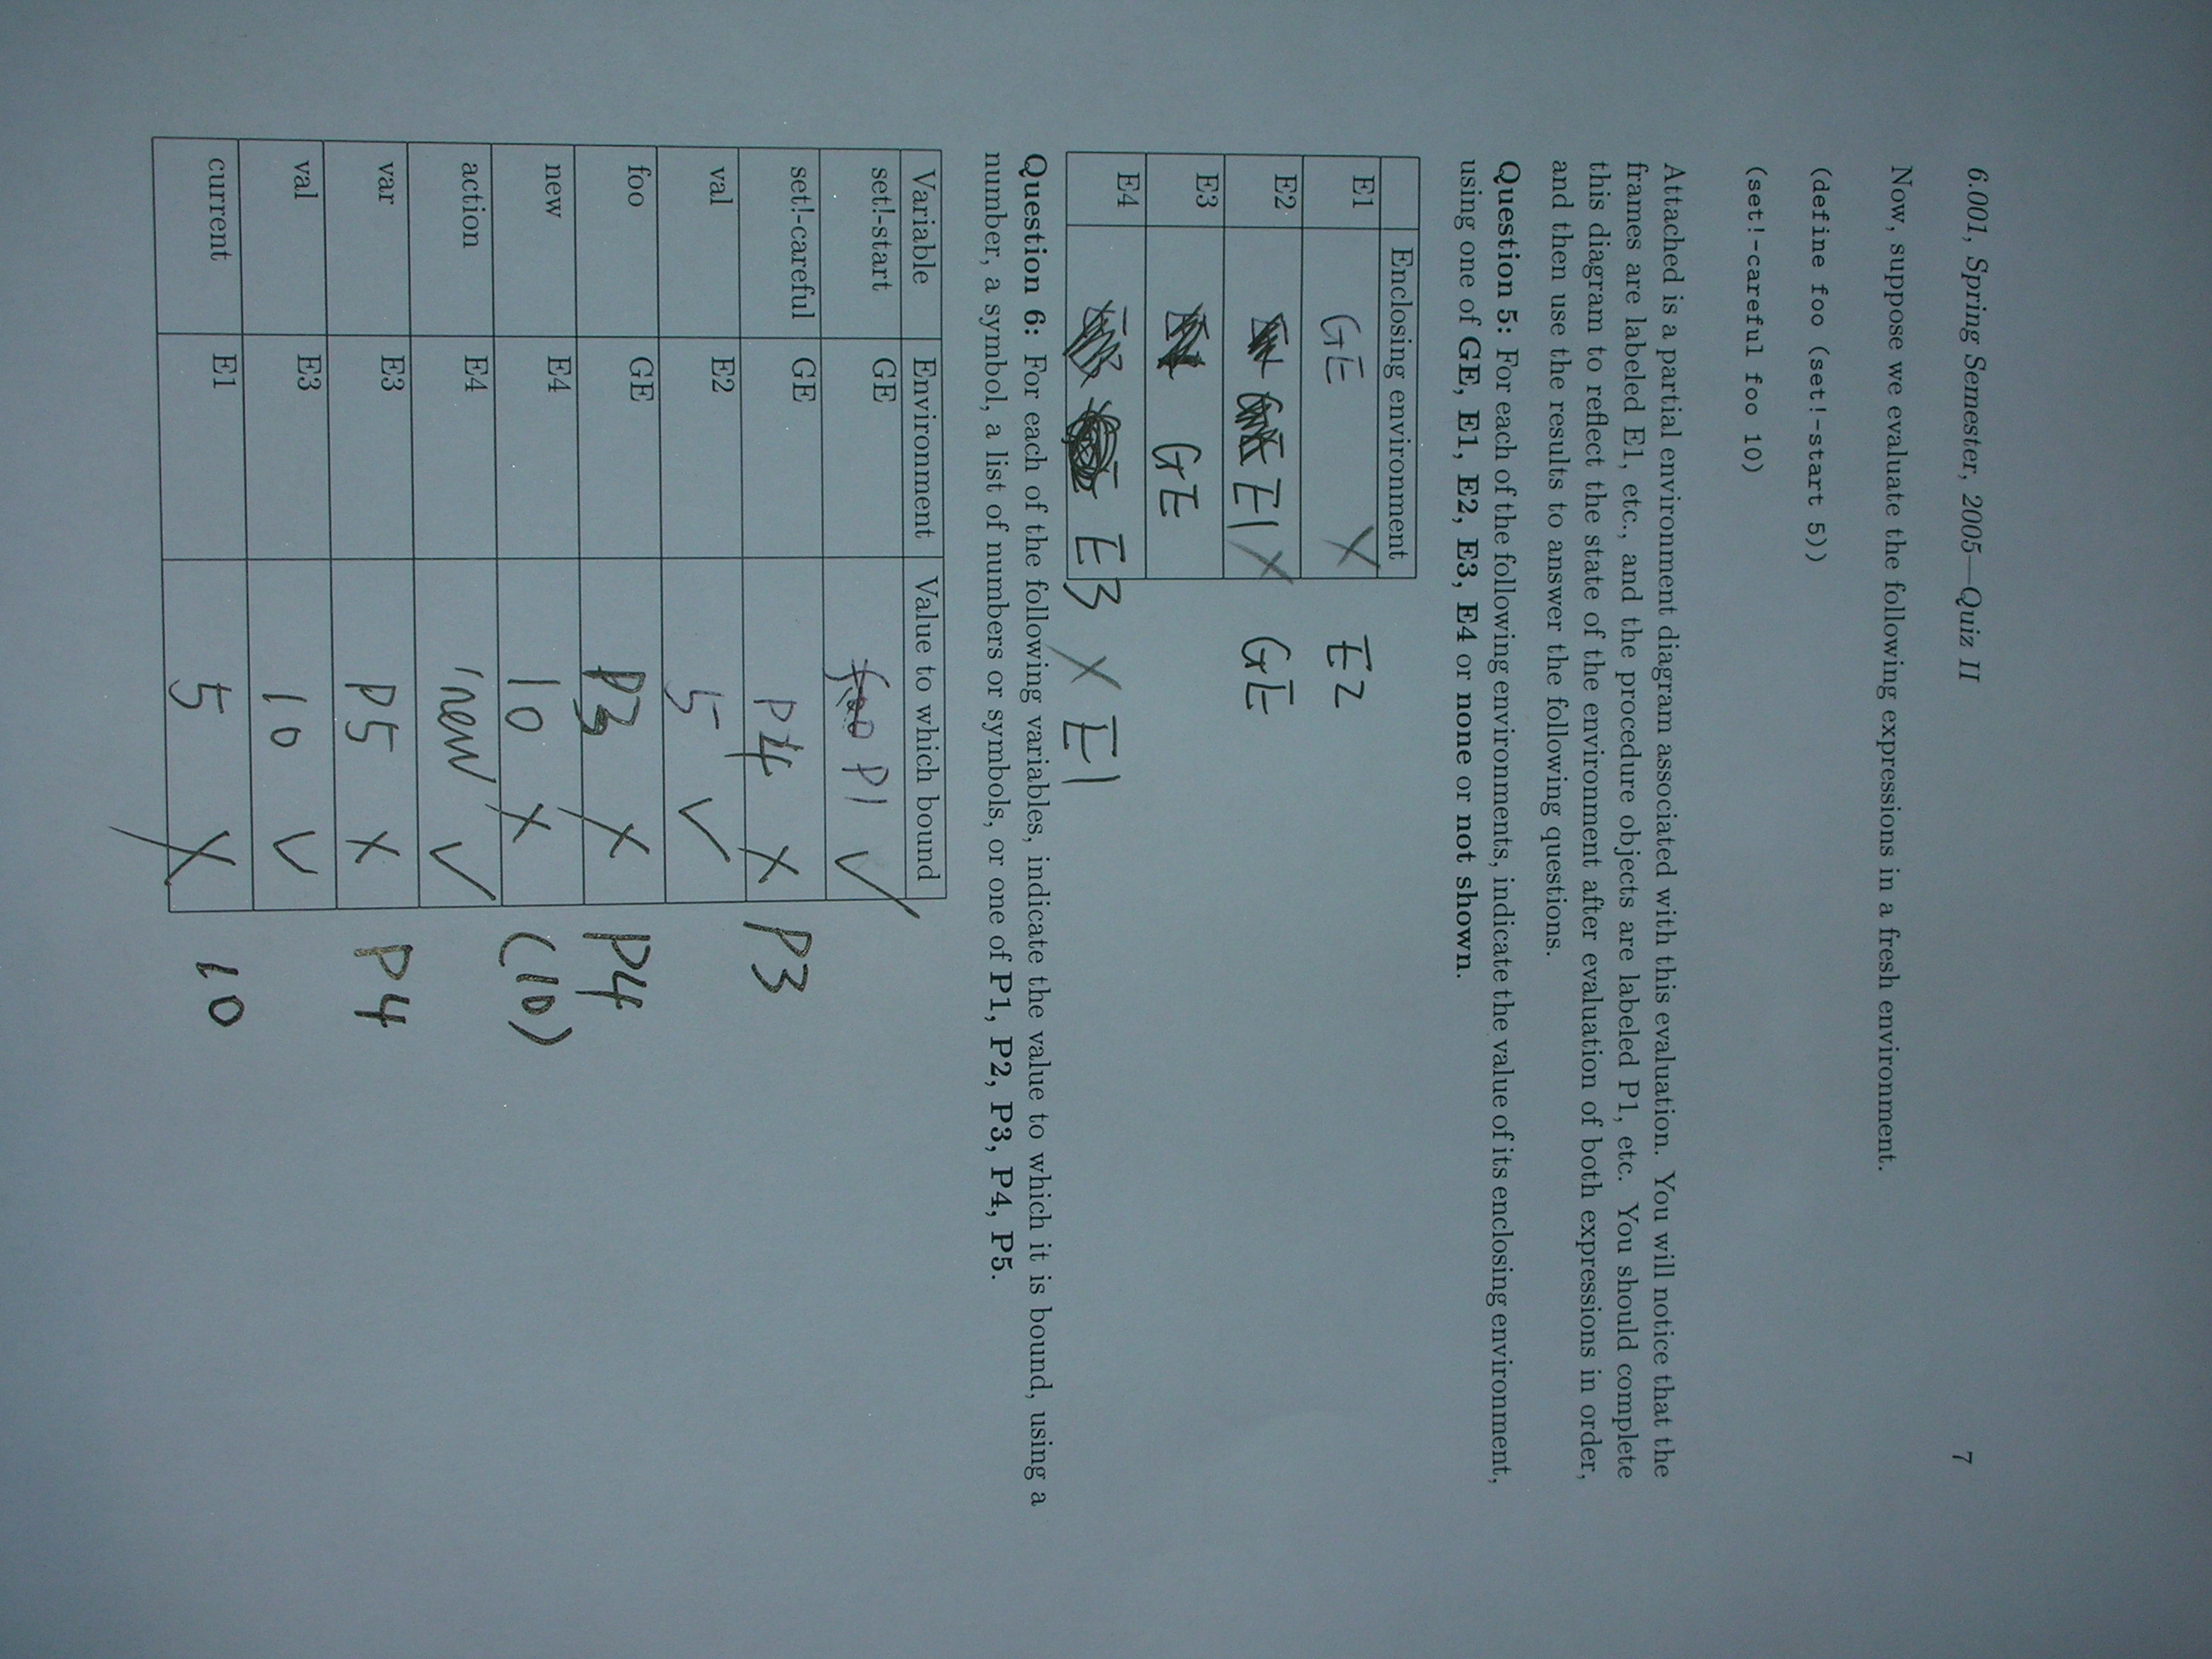 6.001, Spring Semester, 2005—Quiz II 7
Now, suppose we evaluate the following expressions in a fresh environment.
(define foo (set!-start 5))
(set!-careful foo 10)
Attached is a partial environment diagram associated with this evaluation. You will notice that the
frames are labeled E1, etc., and the procedure objects are labeled P1, etc. You should complete
this diagram to reflect the state of the environment after evaluation of both expressions in order,
and then use the results to answer the following questions.
Question 5: For each of the following environments, indicate the value of its enclosing environment,
using one of GE, E1, E2, E3, E4 or none or not shown.
Enclosing environment
E1 GE X E2
E2 E1 X GE
E3 GE
E4 E3 X E1
Question 6: For each of the following variables, indicate the value to which it is bound, using a
number, a symbol, a list of numbers or symbols, or one of P1, P2, P3, P4, P5.
Variable Environment Value to which bound
set!-start GE P1 ✓
set!-careful GE P4 X P3
val E2 5 ✓
foo GE P3 X P4
new E4 10 X (10)
action E4 'new ✓
var E3 P5 X P4
val E3 10 ✓
current E1 5 X 10